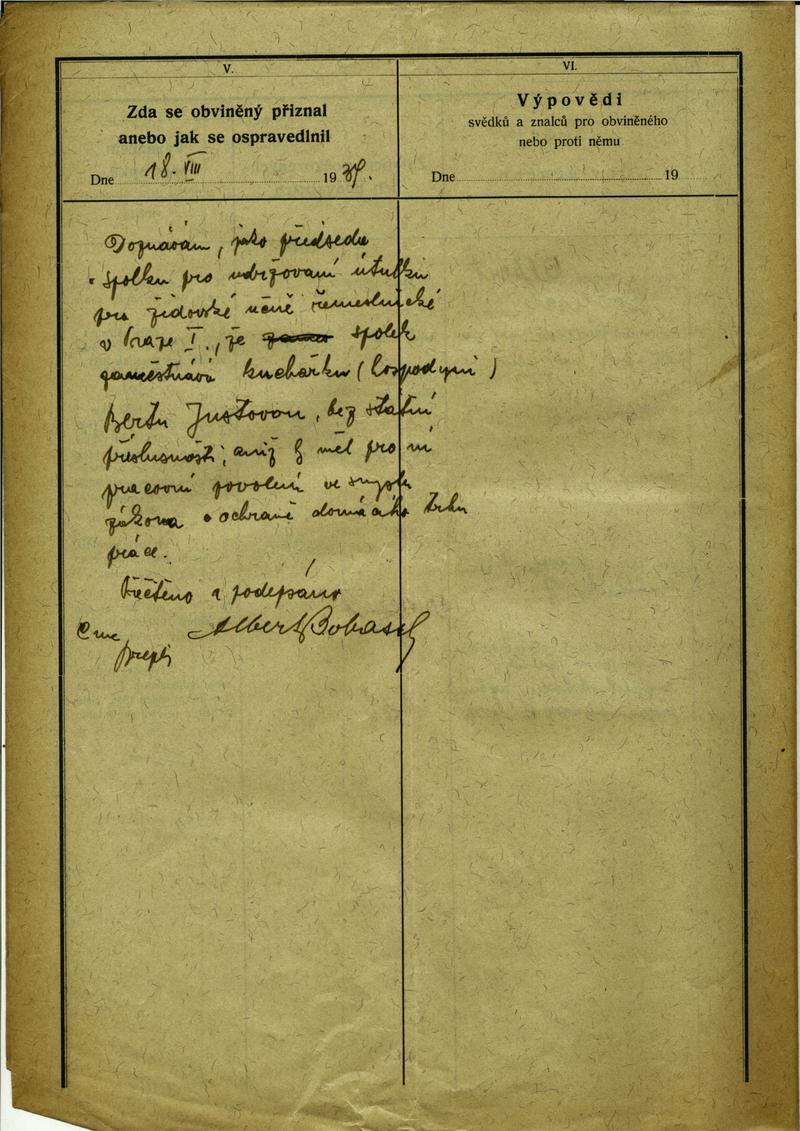 V.
Zda se obviněný přiznal
anebo jak se ospravedlnil
Dne 18. VIII 1939.
VI.
Výpovědi
svědků a znalců pro obviněného
nebo proti němu
Dne 19
Doznávám, jako předseda
spolku pro udržovaní útulku
pro židovské učně řemeslnické
v Praze I., že spolek
zaměstnává kuchařku (hospodyni)
Bertu Justovou, bez státní
příslušnosti, aniž měl pro ni
pracovní povolení ve smyslu
zákona o ochraně domácího trhu
práce.
Přečteno a podepsáno
Albert Bobasch